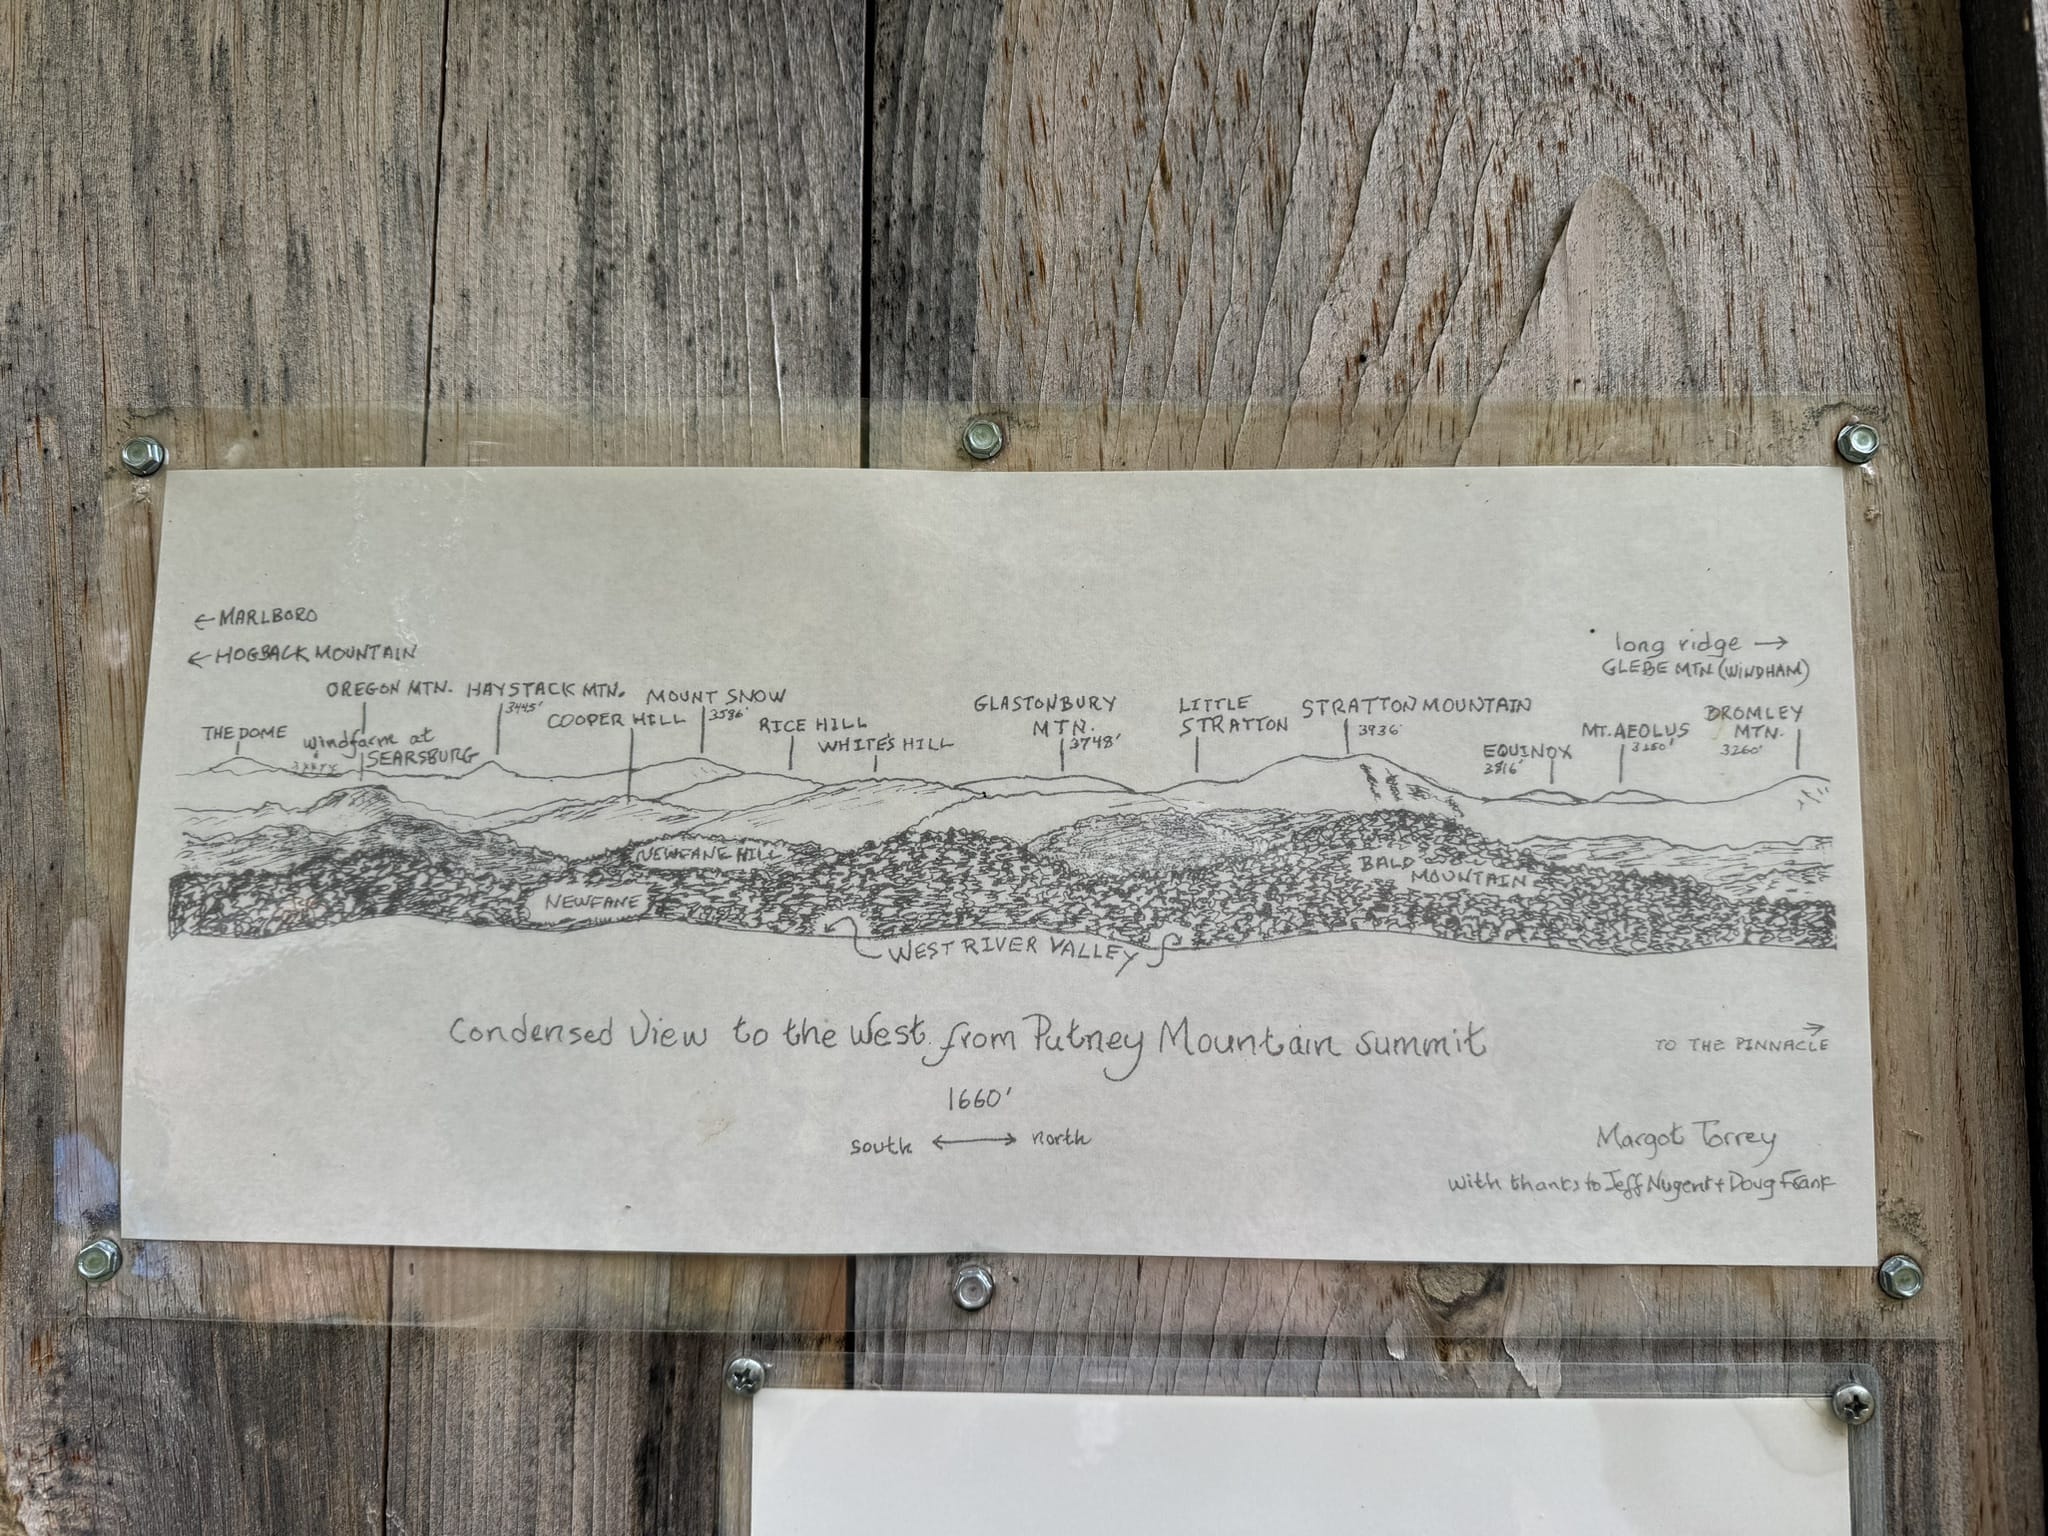 ← MARLBORO
← HOGBACK MOUNTAIN
long ridge →
GLEBE MTN (WINDHAM)
OREGON MTN.
HAYSTACK MTN.
3445'
COOPER HILL
MOUNT SNOW
3586'
RICE HILL
WHITE'S HILL
GLASTONBURY
MTN.
3748'
LITTLE
STRATTON
STRATTON MOUNTAIN
3936'
EQUINOX
3816'
MT. AEOLUS
BROMLEY
MTN.
3260'
THE DOME
windfarm at
SEARSBURG
NEWFANE HILL
NEWFANE
BALD
MOUNTAIN
WEST RIVER VALLEY
Condensed View to the West from Putney Mountain summit
1660'
south ←→ north
→
TO THE PINNACLE
Margot Torrey
with thanks to Jeff Nugent + Doug Frank